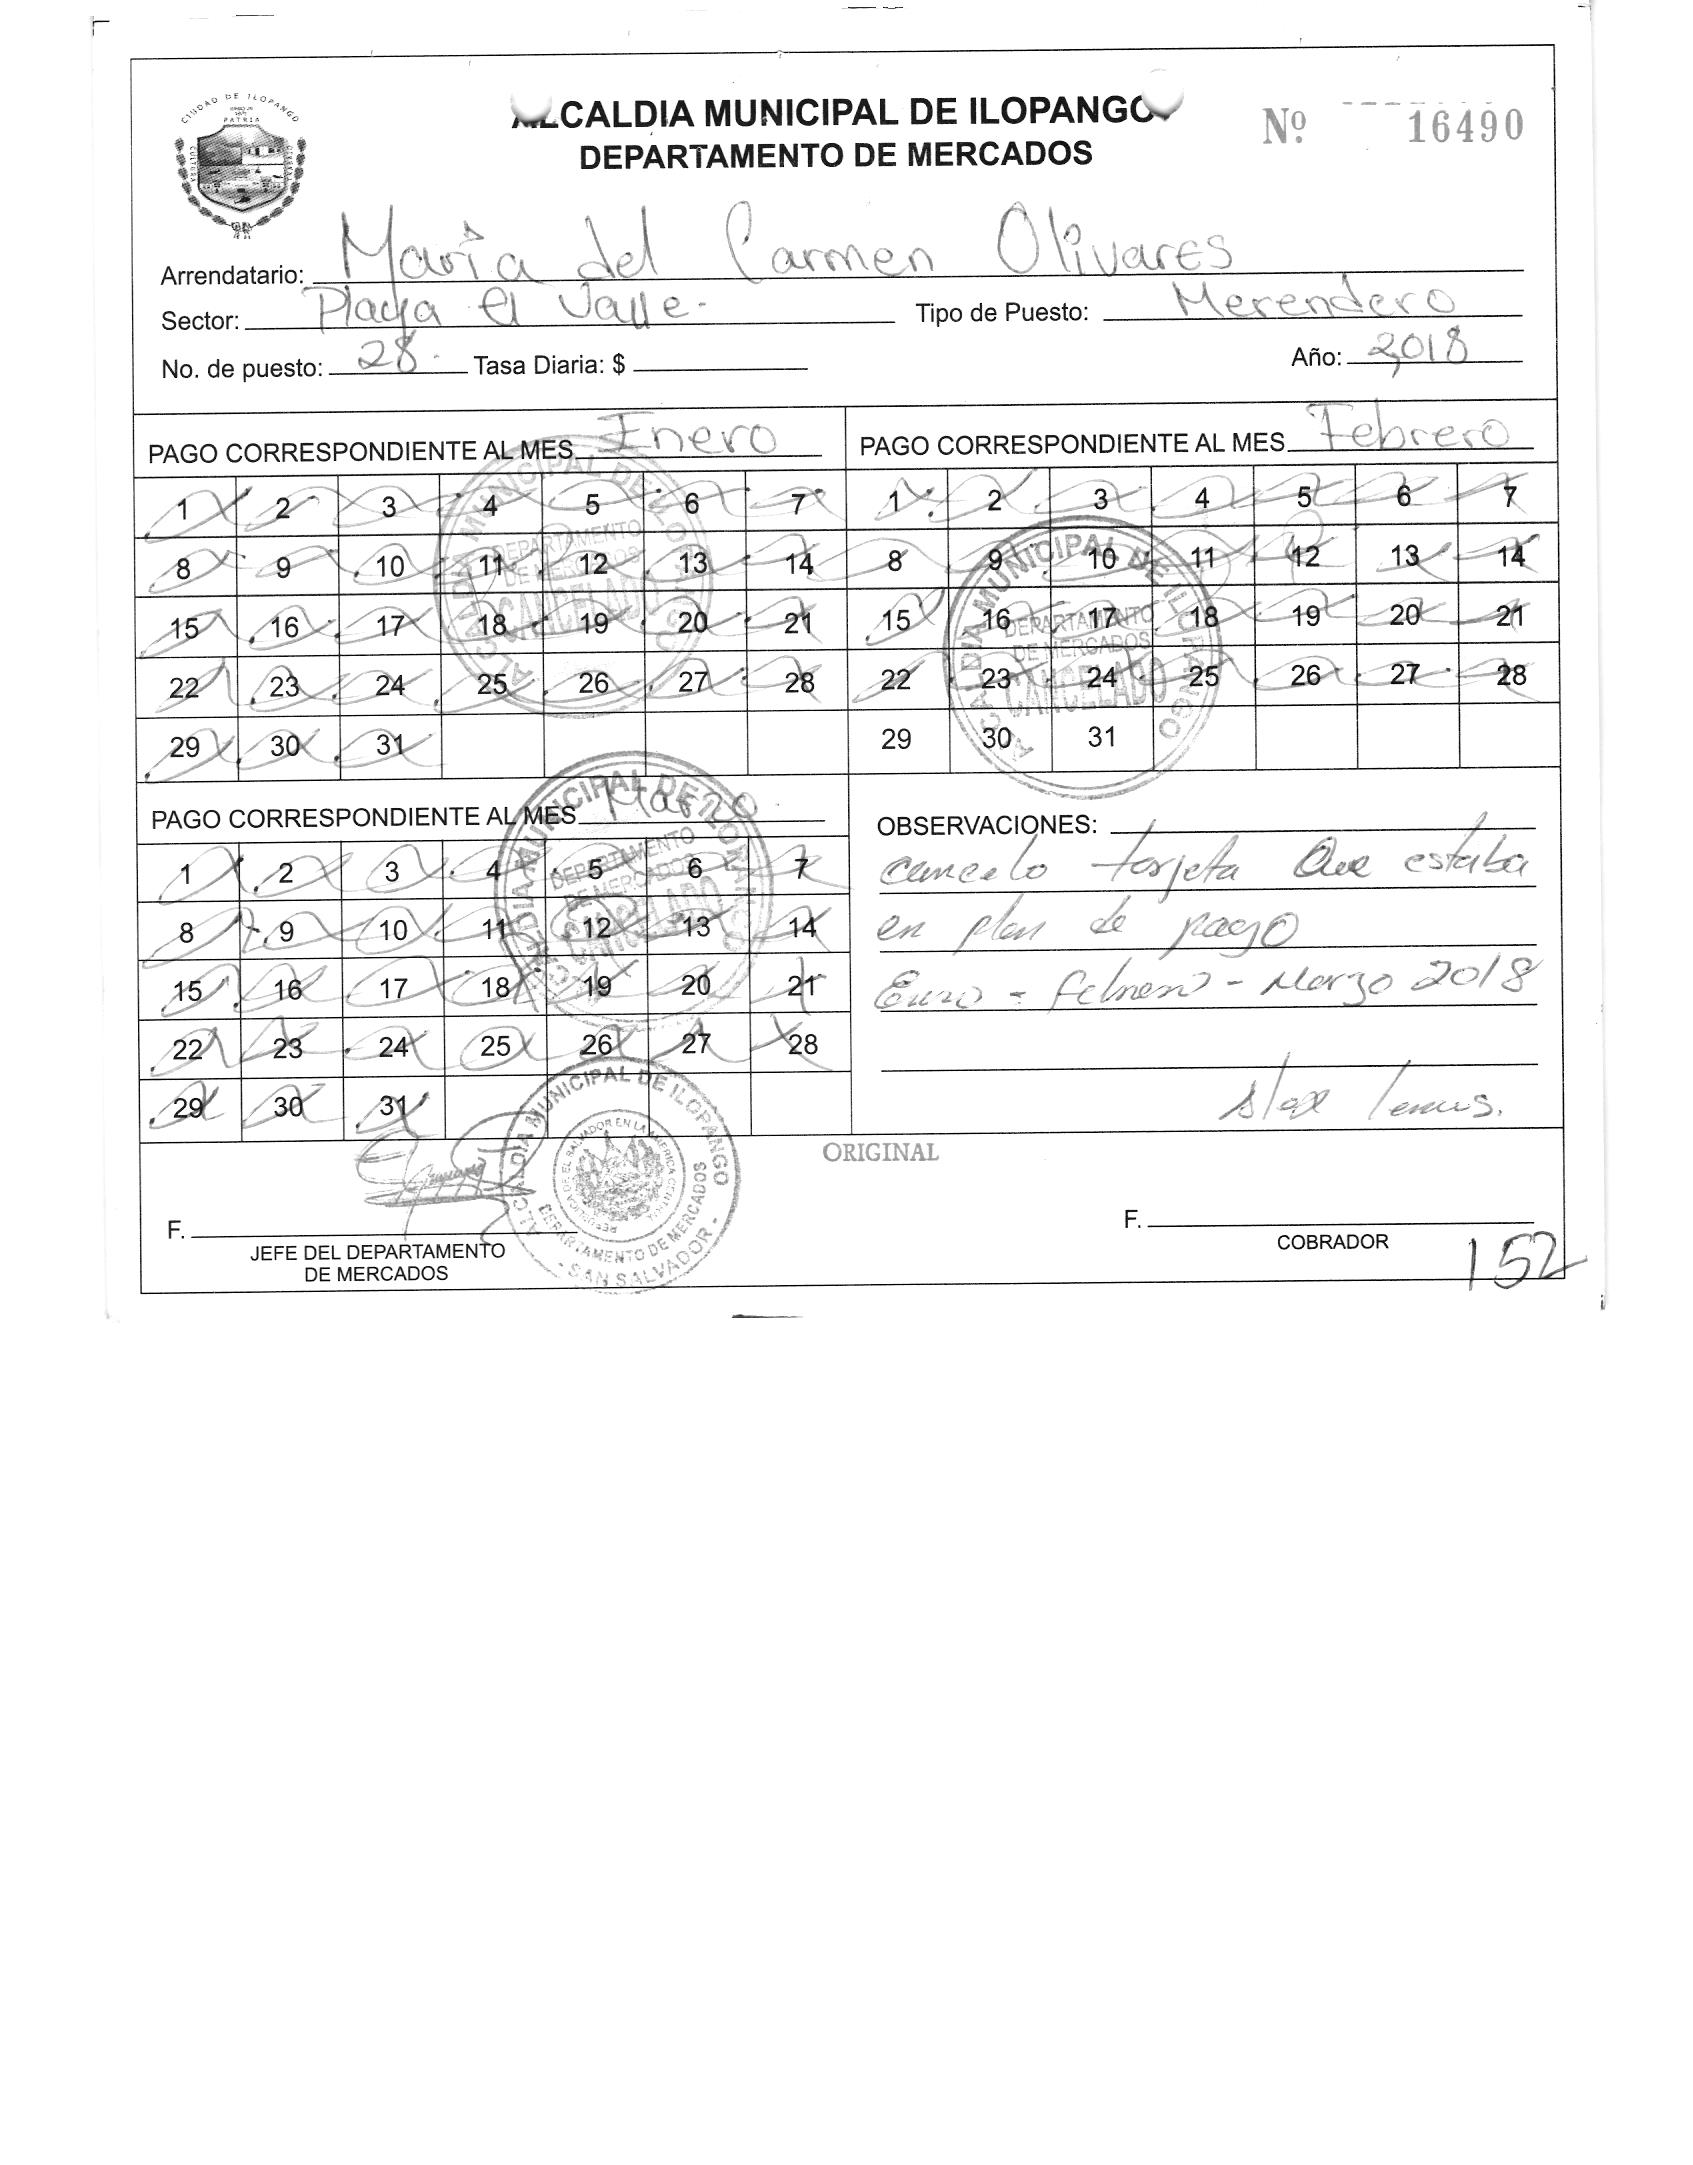 CIUDAD DE ILOPANGO
PATRIA
CULTURA
ALCALDIA MUNICIPAL DE ILOPANGO
DEPARTAMENTO DE MERCADOS
Nº 16490
Arrendatario: María del Carmen Olivares
Sector: Playa El Valle. Tipo de Puesto: Merendero
No. de puesto: 28. Tasa Diaria: $ Año: 2,018
PAGO CORRESPONDIENTE AL MES Enero
1 2 3 4 5 6 7
8 9 10 11 12 13 14
15 16 17 18 19 20 21
22 23 24 25 26 27 28
29 30 31
ALCALDIA MUNICIPAL DE ILOPANGO
DEPARTAMENTO
DE MERCADOS
CANCELADO
PAGO CORRESPONDIENTE AL MES Febrero
1 2 3 4 5 6 7
8 9 10 11 12 13 14
15 16 17 18 19 20 21
22 23 24 25 26 27 28
29 30 31
ALCALDIA MUNICIPAL DE ILOPANGO
DEPARTAMENTO
DE MERCADOS
CANCELADO
PAGO CORRESPONDIENTE AL MES Marzo
1 2 3 4 5 6 7
8 9 10 11 12 13 14
15 16 17 18 19 20 21
22 23 24 25 26 27 28
29 30 31
ALCALDIA MUNICIPAL DE ILOPANGO
DEPARTAMENTO
DE MERCADOS
CANCELADO
OBSERVACIONES:
cancelo tarjeta Que estaba
en plan de pago
Enero - febrero - Marzo 2018
Alex Lemus.
ORIGINAL
F.
JEFE DEL DEPARTAMENTO
DE MERCADOS
ALCALDIA MUNICIPAL DE ILOPANGO
REPUBLICA DE EL SALVADOR EN LA AMERICA CENTRAL
DEPARTAMENTO DE MERCADOS
- SAN SALVADOR -
F.
COBRADOR
152